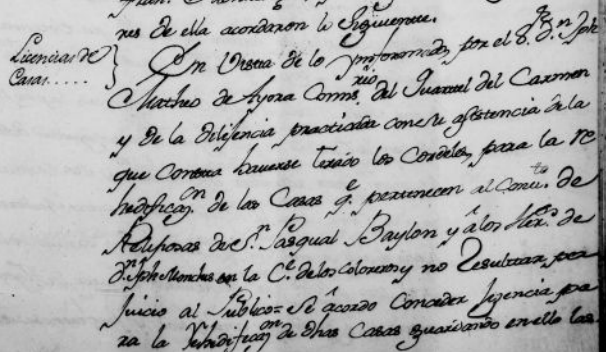 res de ella acordaron lo siguiente.
Licencias de
Casas.....
En Vista de lo ynformado por el S.r d.n Jph
Matheo de Ayora Comis.rio del Quartel del Carmen
y de la dilijencia practicada con su asistencia de la
que Consta haverse tirado los Cordeles para la re
hedificaz.on de las Casas q.e pertenecen al Conv.to de
Relijiosas de S.n Pasqual Baylon y â los Her.s de
d.n Jph Monchus en la C.e de los Coloreros y no Resultar per
juicio al Público = Se âcordo Conceder lizencia pa
ra la Rehedificaz.on de dhas Casas guardando en ello las